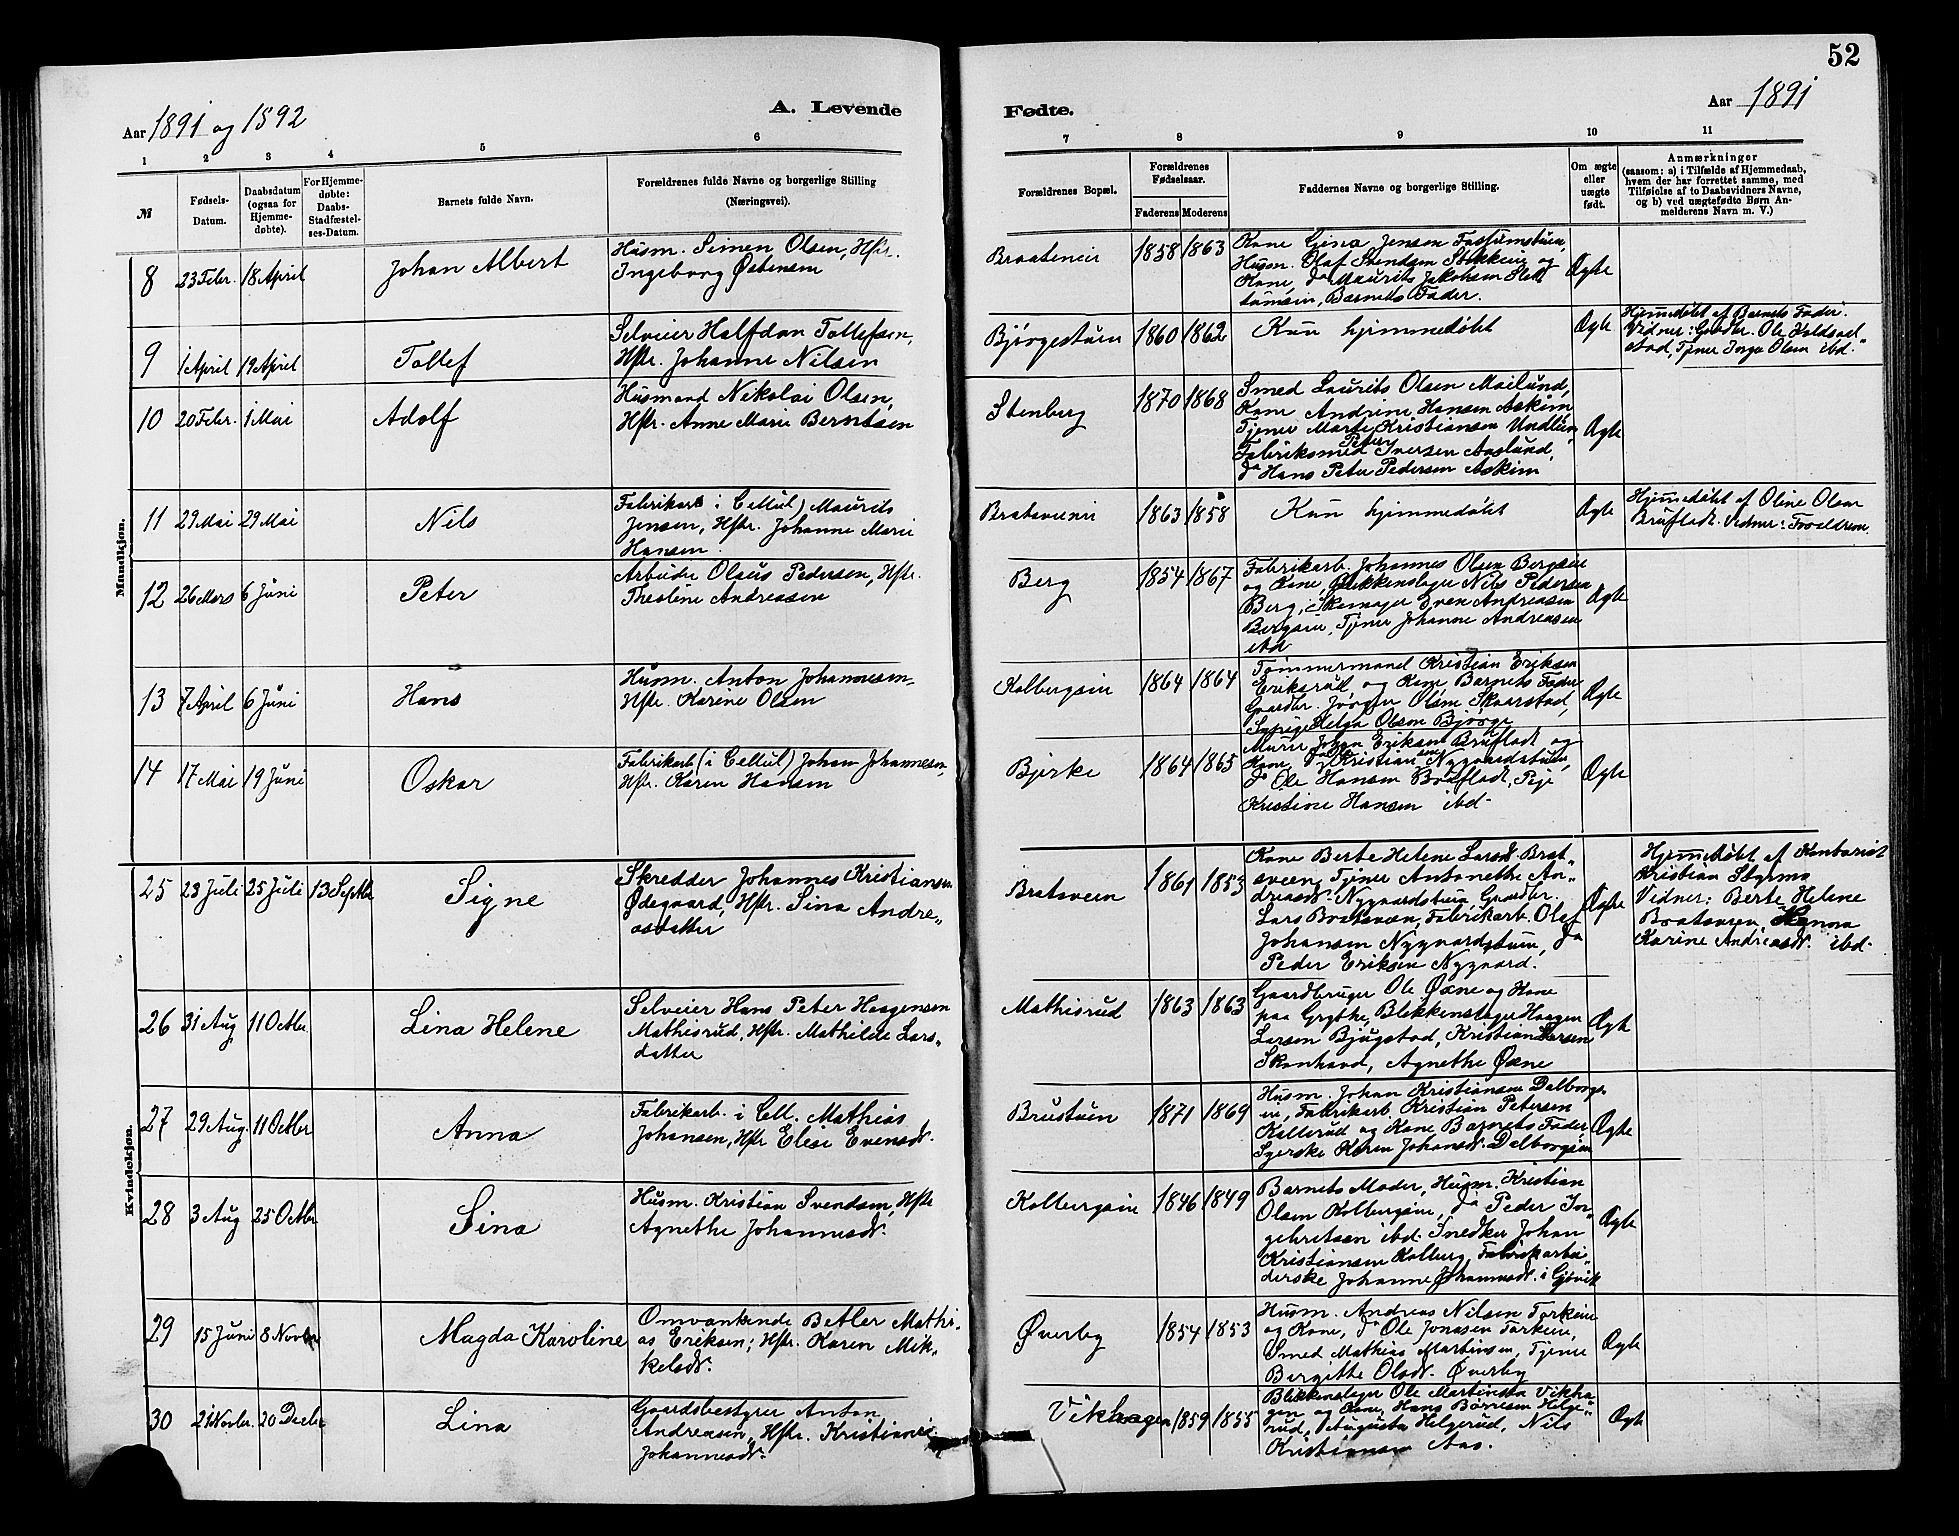 52
Aar 1891 og 1892
A. Levende
Fødte.
Aar 1891
1 2 3 4 5 6 7 8 9 10 11
№
Fødsels-
Datum.
Daabsdatum
(ogsaa for
Hjemme-
døbte).
For Hjemme-
døbte:
Daabs-
Stadfæstel-
ses-Datum.
Barnets fulde Navn.
Forældrenes fulde Navne og borgerlige Stilling
(Næringsvei).
Forældrenes Bopæl.
Forældrenes
Fødselsaar.
Faderens Moderens
Faddernes Navne og borgerlige Stilling.
Om ægte
eller
uægte
født.
Anmærkninger
(saasom: a) i Tilfælde af Hjemmedaab,
hvem der har forrettet samme, med
Tilføielse af to Daabsvidners Navne,
og b) ved uægtefødte Børn An-
melderens Navn m. V.)
Mandkjøn.
8 23 Febr. 18 April
Johan Albert
Husm. Simen Olsen, Hstr.
Ingeborg Østensen
Braateneie
1858 1863
Kone Gina Jensen Fossumstuen,
Husm. Olaf Svendsen Stikken og
Kone, do Maurits Jakobsen
Barnets Fader.
Ægte
9 1 April 19 April
Tollef
Selveier Halfdan Tollefsen,
Hstr. Johanne Nilsen
Bjørgestuen
1860 1862
Kun hjemmedøbt
Ægte
Hjemmedøbt af Barnets Fader.
Vidner: Gaardbr. Ole
Tjener Inga Olsen ibd.
10 20 Febr. 1 Mai
Adolf
Husmand Nikolai Olsen,
Hstr. Anne Marie Berntsen
Stenberg
1870 1868
Smed Laurits Olsen Mailund,
Kone Andrine Hansen Askim
Tjener Marte Kristiansen Undlien,
Fabriksmed Peter Iversen Aaslund,
do Hans Peter Pedersen Askim
Ægte
11 29 Mai 29 Mai
Nils
Fabrikarb (i Cellul) Maurits
Jensen, Hstr. Johanne Marie
Hansen.
Bratsveenei
1863 1858
Kun hjemmedøbt
Ægte
Hjemmedøbt af Oline Olsen
Brufladt. Vidner: Forældrene.
12 26 Mars 6 Juni
Peter
Arbeider Olaus Pedersen, Hstr.
Theoline Andreasen
Berg
1854 1867
Fabrikarb. Johannes Olsen Bergseie
og Kone, Blikkenslager Nils Pedersen
Berg, Skomager Sven Andreasen
Bergseie, Tjener Johanne Andreasen
ibd
Ægte
13 7 April 6 Juni
Hans
Husm. Anton Johannesen
Hstr. Karine Olsen
Kolbergseie
1864 1864
Tømmermand Kristian Eriksen
Eriksrud og Kone Barnets Fader
Gaardbr. Jørgen Olsen Skaarstad,
Sypige Helga Olsen Bjørge
Ægte
14 17 Mai 19 Juni
Oskar
Fabrikarb (i Cellul) Johan Johannesen,
Hstr. Karen Hansen
Bjerke
1864 1865
Murer Johan Eriksen Brufladt og
Kone, do Kristian Nygaardstuen,
do Ole Hansen Brufladt, Pige
Kristine Hansen ibd.
Ægte
Kvindekjøn.
25 23 Juli 25 Juli 13 Septbr
Signe
Skredder Johannes Kristiansen
Ødegaard, Hstr. Sina Andre-
asdatter
Bratsveen
1861 1853
Kone Berte Helene Larsdt. Brat-
sveen, Tjener Antonethe An-
dreasdt. Nygaardstuen, Gaardbr.
Lars Bratsveen, Fabrikarb. Olaf
Johansen Nygaardstuen, do
Peder Eriksen Nygaard.
Ægte
Hjemmedøbt af Kontorist
Kristian Styrmo
Vidner: Berte Helene
Bratsveen, Hanna
Karine Andreasdt. ibd.
26 31 Aug 11 Octbr.
Lina Helene
Selveier Hans Peter Haagensen
Mathisrud, Hstr. Mathilde Lars-
datter
Mathisrud
1863 1863
Gaardbruger Ole Øxne og Kone
paa Grythe, Blikkenslager Haagen
Larsen Bjugstad, Kristian Larsen
Skonhovd, Agnethe Øxne
Ægte
27 29 Aug. 11 Octbr
Anna
Fabrikarb. i Cell. Mathias
Johansen, Hstr Elise Evensdt.
Brustuen
1871 1869
Husm. Johan Kristiansen Dalborgs-
ei, Fabrikarb. Kristian Petersen
Kallerud og Kone Barnets Fader
Syerske Karen Johansdt. Dalborgseie
Ægte
28 3 Aug 25 Octbr
Sina
Husm. Kristian Svendsen, Hstr
Agnethe Johannesdt.
Kolbergseie
1846 1849
Barnets Moder, Husm. Kristian
Olsen Kolbergseie, do Peder In-
gebretsen ibd. Snedker Johan
Kristiansen Kolberg, Fabrikarbei-
derske Johanne Johannesdt. i Gjøvik
Ægte
29 15 Juni 8 Novbr
Magda Karoline
Omvankende Betler Mathi-
as Eriksen; Hstr. Karen Mik-
kelsdt.
Øverby
1854 1853
Husm. Andreas Nilsen Torkeie
og Kone, do Ole Jonasen Torkeie,
Smed Mathias Martinsen, Tjener
Bergithe Olsdt. Øverby
Ægte
30 21 Novbr. 20 Decbr
Lina
Gaardsbestyrer Anton
Andreasen, Hstr. Kristiane
Johannesdt.
Vikhagen
1859 1855
Blikkenslager Ole Martinsen Vikha-
gen og Kone, Hans Børresen Helge-
rud, Augusta Helgerud, Nils
Kristiansen Aas.
Ægte